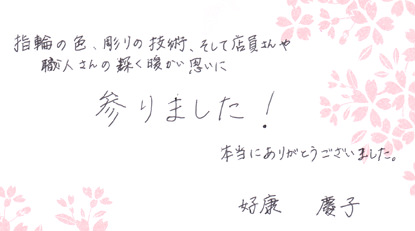 指輪の色、彫りの技術、そして店員さんや
職人さんの輝く暖かい思いに
参りました!
本当にありがとうございました。
好康 慶子